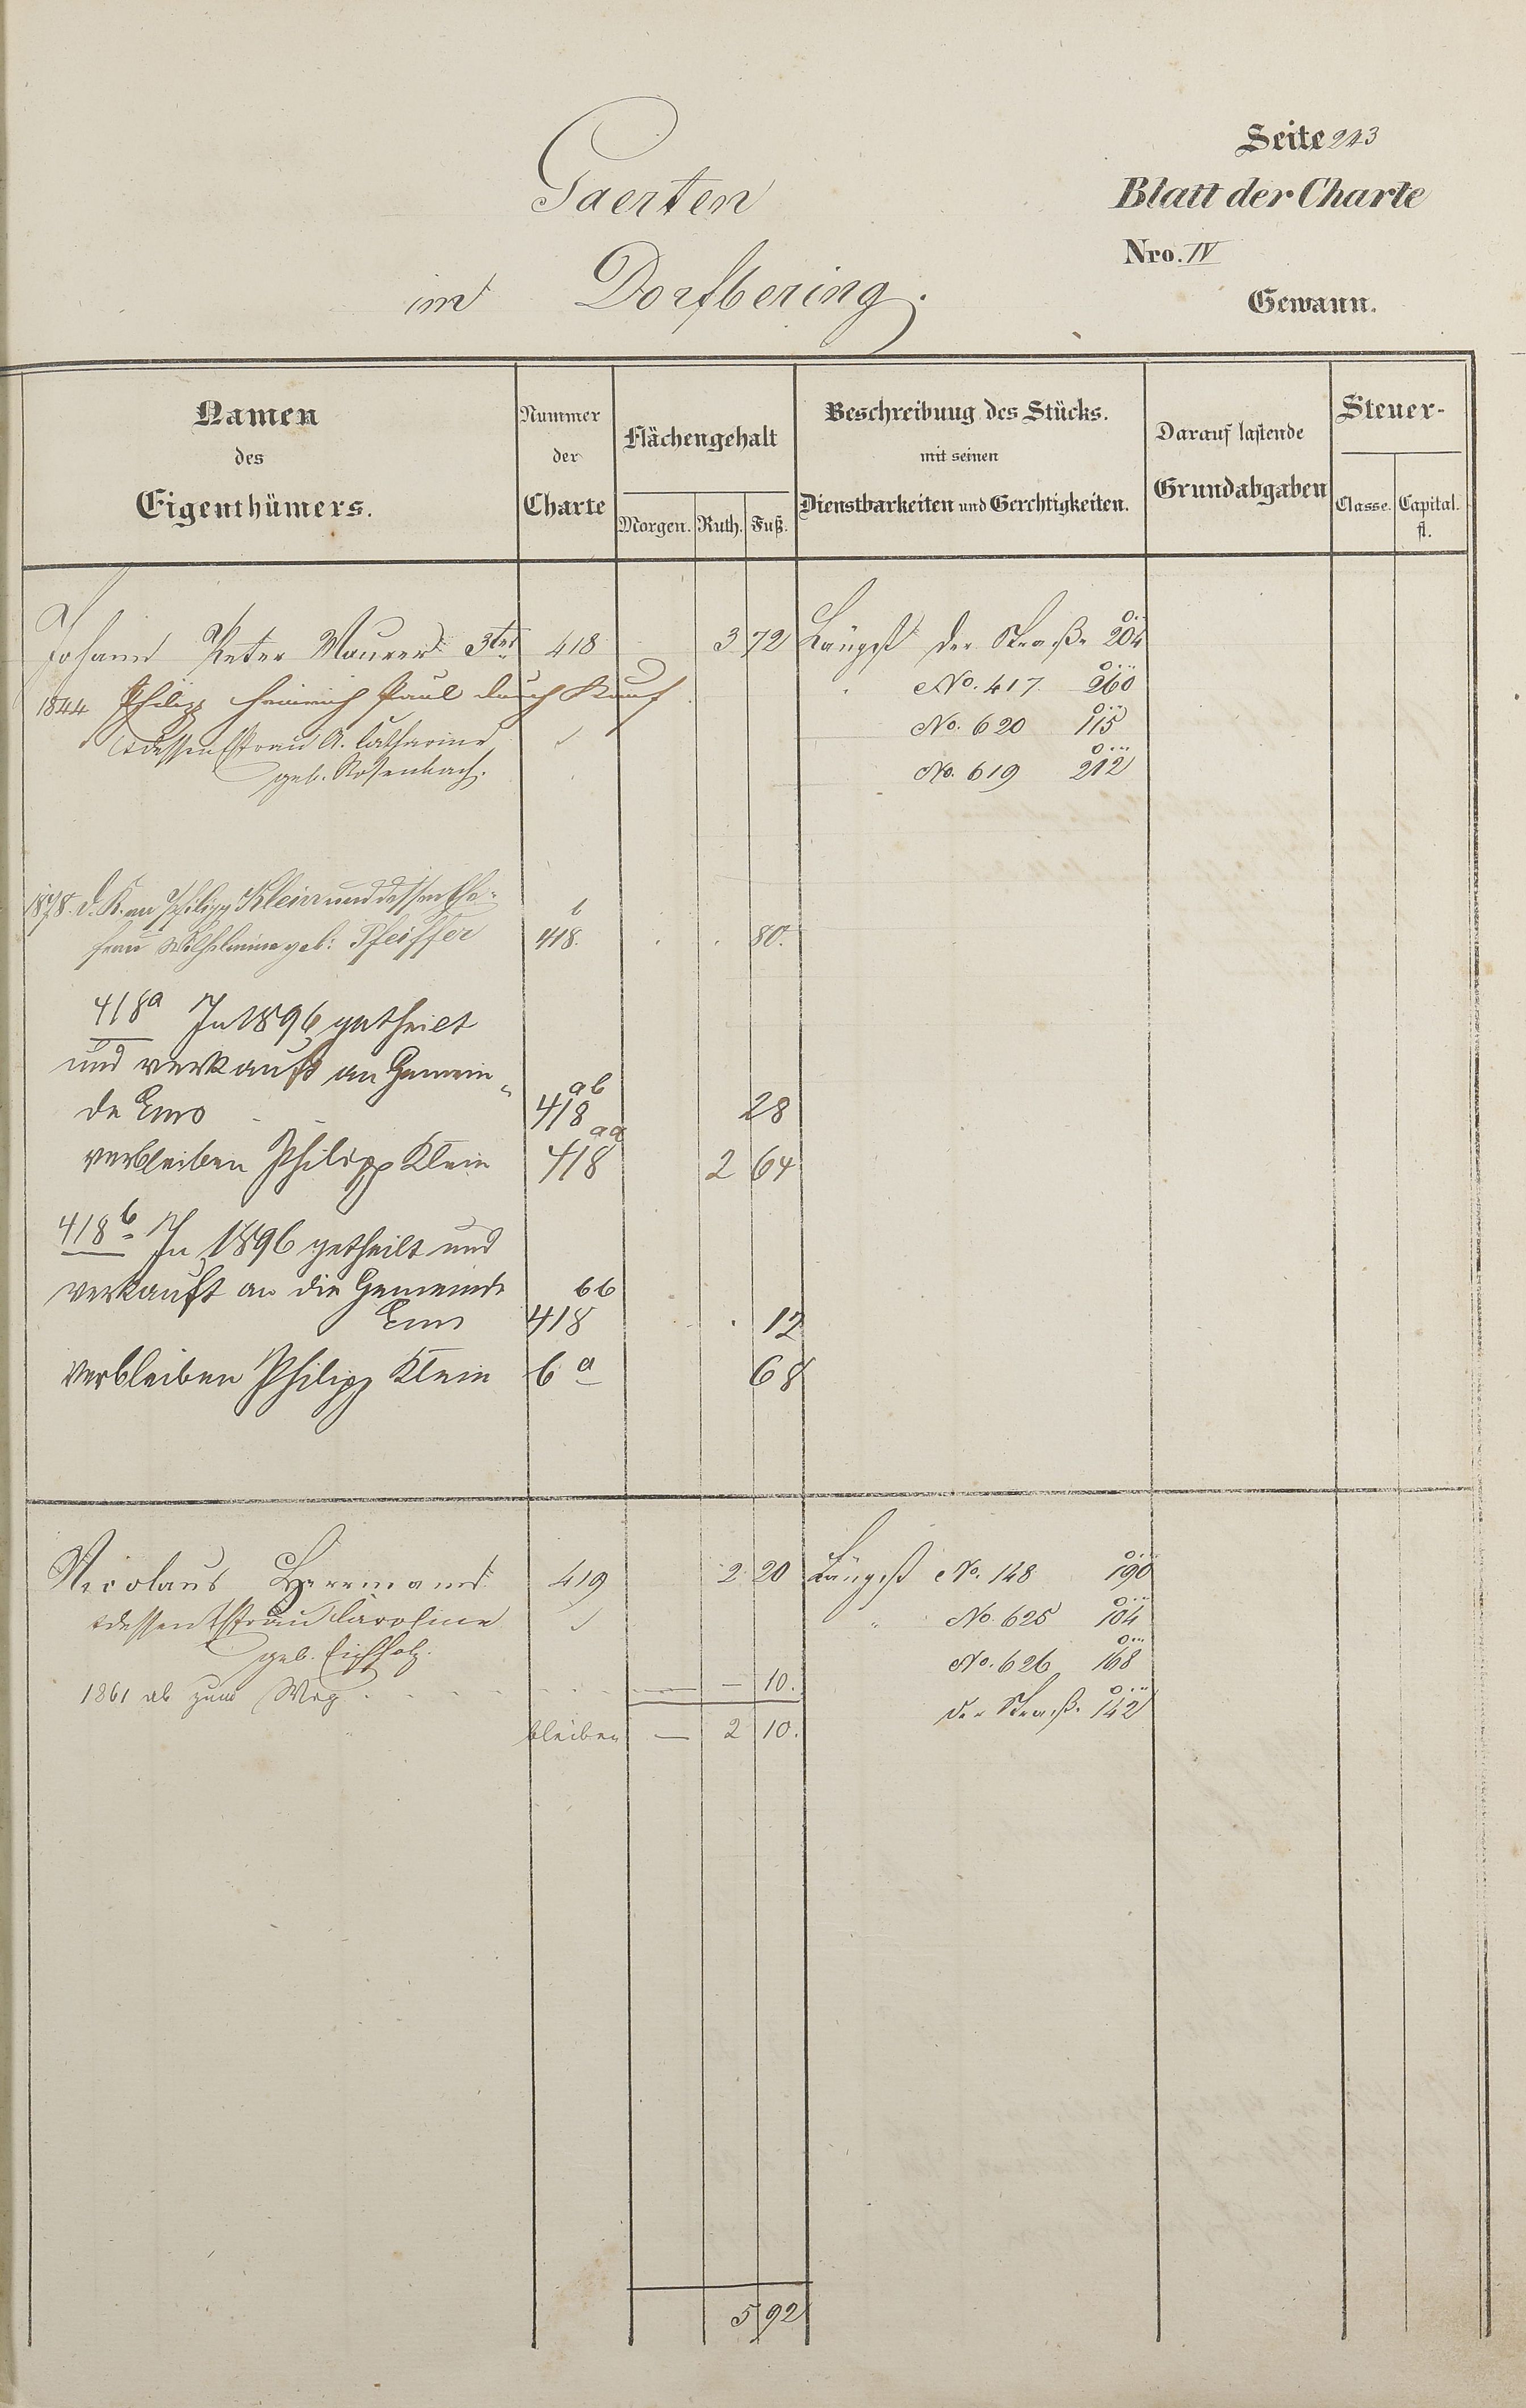 Seite 243
Gaerten
Blatt der Charte
Nro. IV
im Dorfbering.
Gewann.
Namen des Eigenthümers.
Nummer der Charte
Flächengehalt
Morgen. Ruth. Fuß.
Beschreibung des Stücks.
mit seinen
Dienstbarkeiten und Gerechtigkeiten.
Darauf lastende
Grundabgaben
Steuer-
Classe. Capital. fl.
Johann Peter Maurer 3ter 418 3 72 Längst der Straße 204
1844 Philipp Heinrich Paul durch Kauf No. 417 260
& dessen Ehfrau A. Catharine No. 620 115
geb. Rosenbach. No. 619 212
1878. d. K. an Philipp Klein und dessen Ehe-
frau Wilhelmine geb: Pfeiffer 418 b 80.
418a In 1896 getheilt
und verkauft an Gemein-
de Ems 418 ab 28
verbleiben Philipp Klein 418 aa 2 64
418b In 1896 getheilt und
verkauft an die Gemeinde
Ems 418 bb 12
verbleiben Philipp Klein b a 68
Nicolaus Herrmann 419 2 20 Längst No. 148 190
& dessen Ehfrau Caroline " No. 625 104
geb. Eichholz. No. 626 168
1861 ab zum Weg — — 10. der Straße 142
bleiben — 2 10.
5 92